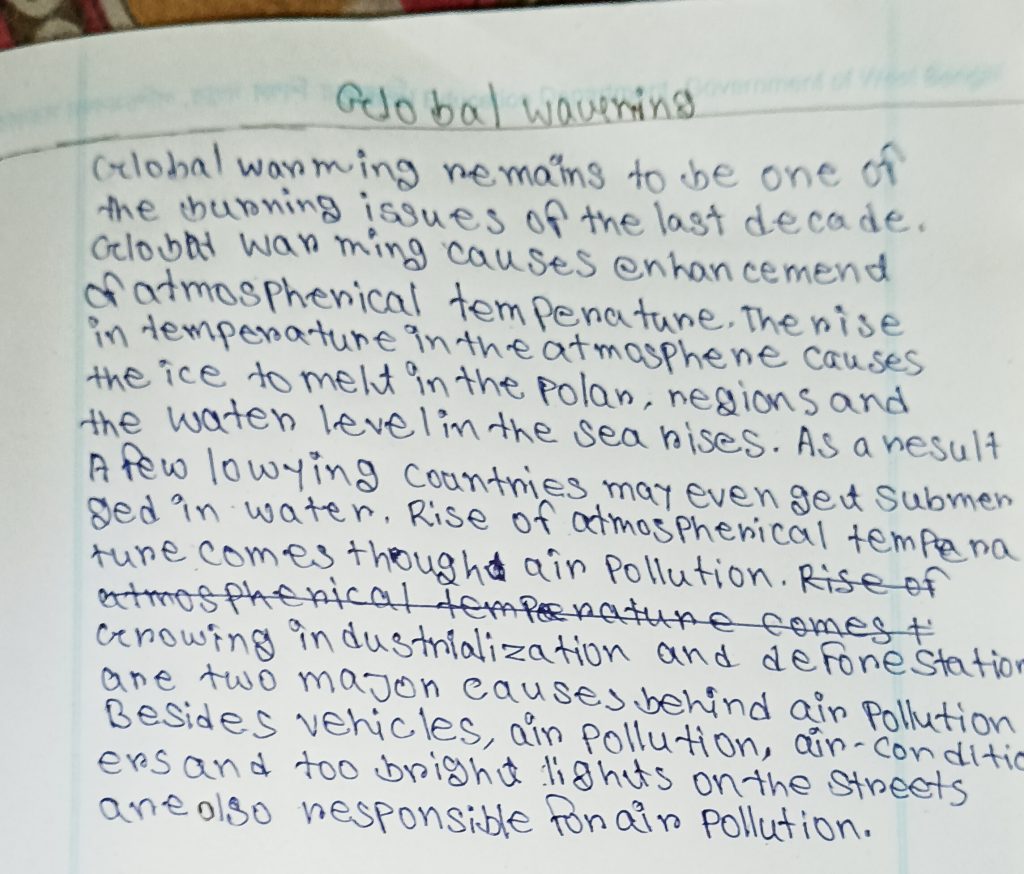 Government of West Bengal
Global wavering
Global warming remains to be one of
the burning issues of the last decade.
Global warming causes enhancemend
of atmospherical temperature. The rise
in temperature in the atmosphere causes
the ice to melt in the polar, regions and
the water level in the sea rises. As a result
A few lowying countries may even get submer
ged in water. Rise of atmospherical tempera
ture comes thought air pollution. Rise of
atmospherical temperature comes t
Growing industrialization and deforestation
are two major causes behind air pollution
Besides vehicles, air pollution, air-conditio
ers and too bright lights on the streets
are also responsible for air pollution.